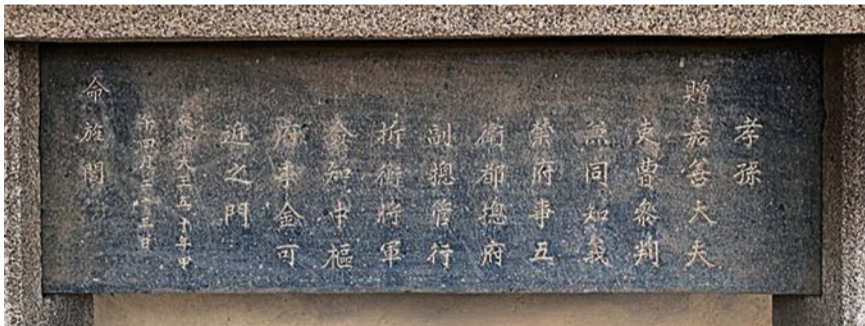 孝孫
贈嘉善大夫
吏曹叅判
兼同知義
禁府事五
衛都摠府
副摠管行
折衝將軍
僉知中樞
府事金可
近之門
年甲
午四月日
命旌閭